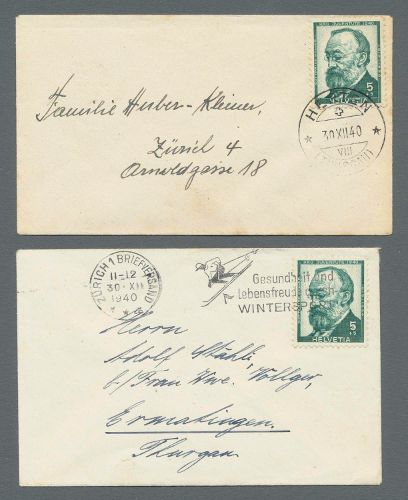 PRO JUVENTUTE 1940
5
HELVETIA
30.XII.40
VIII
Familie Huber-Kleiner,
Zürich 4
Arnoldgasse 18
ZÜRICH 1 BRIEFVERSAND
11-12
30.XII
1940
Gesundheit und
Lebensfreude durch
WINTERSP
PRO JUVENTUTE 1940
5
HELVETIA
Herrn
Adolf Stähli
b/Frau Wwe. Vollger,
Ermatingen.
Thurgau.